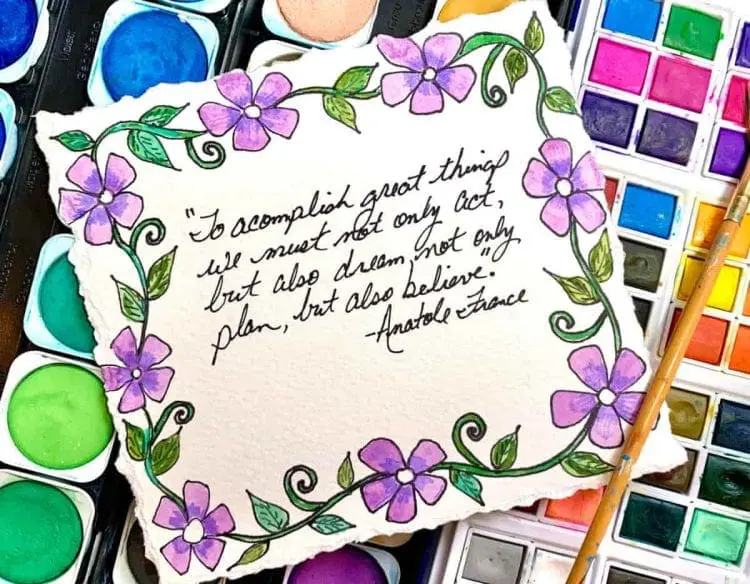 "To acomplish great things
we must not only act,
but also dream, not only
plan, but also believe."
-Anatole France